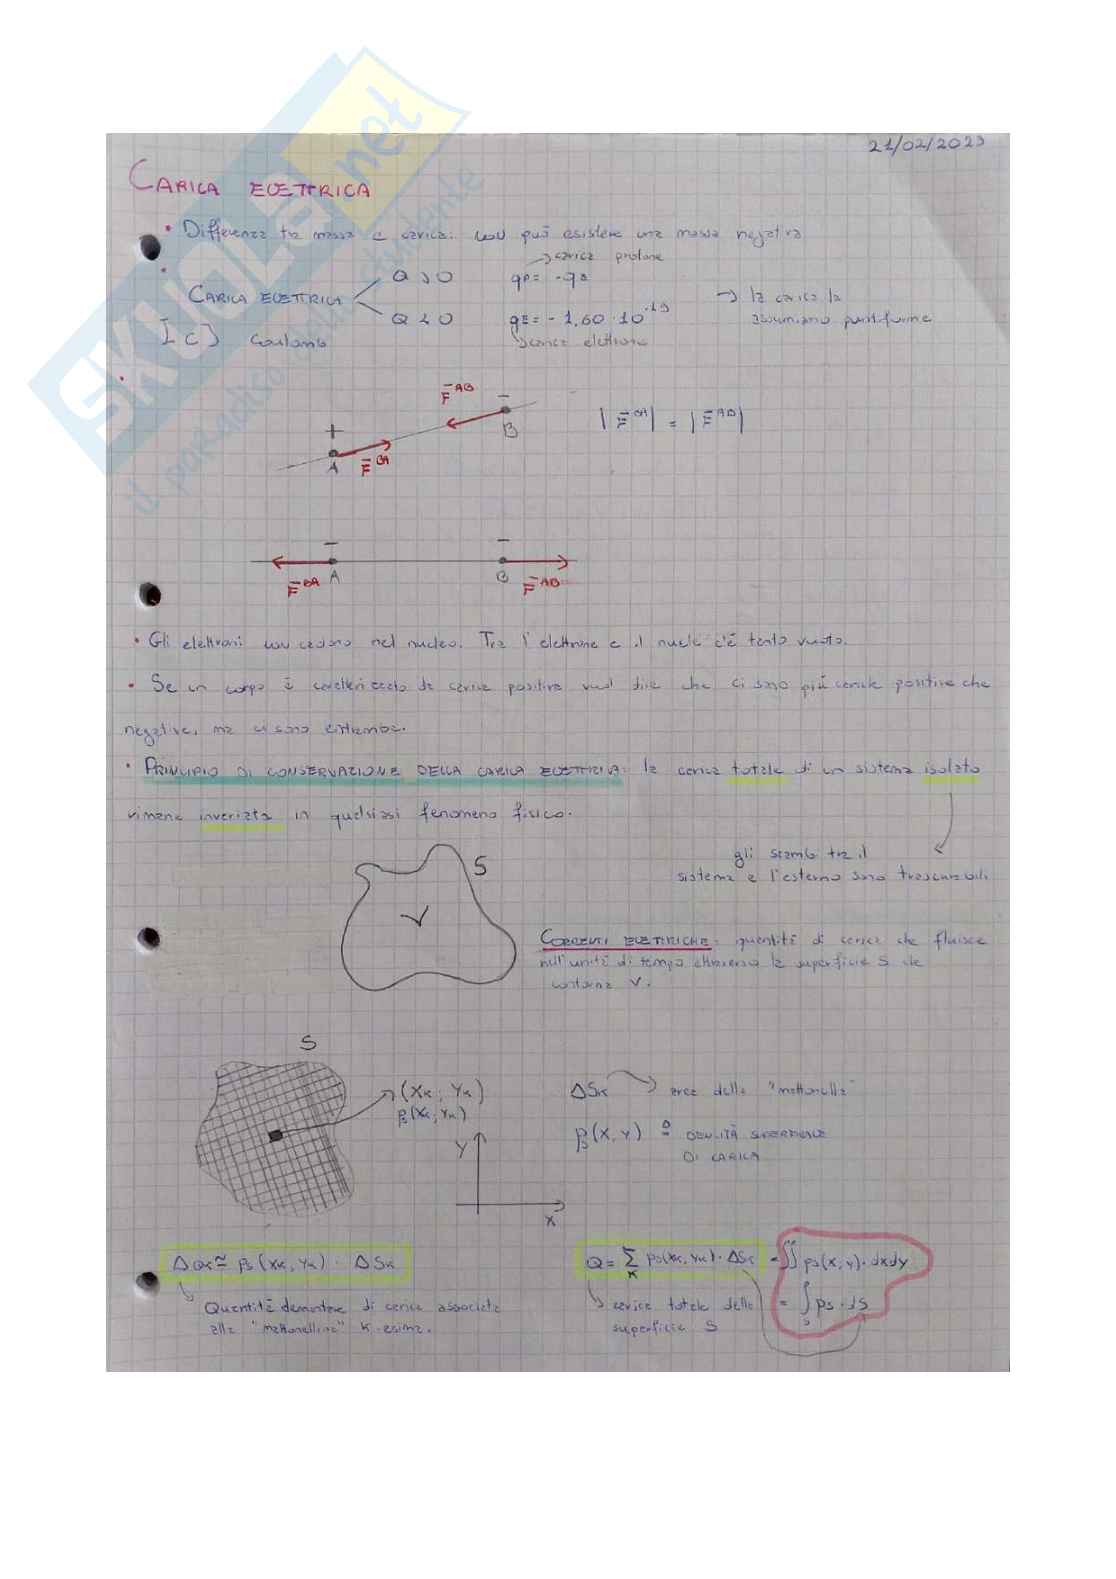 21/02/2023
CARICA ELETTRICA
• Differenza tra massa e carica: non può esistere una massa negativa
→ carica protone
• CARICA ELETTRICA
Q > 0 qp = -qe
Q < 0 qe = -1,60 · 10^-19
→ la carica la
assumiamo puntiforme
[C] Coulomb
→ carica elettrone
F^AB
−
B
+
A
F^BA
|F^BA| = |F^AB|
− −
A B
F^BA F^AB
• Gli elettroni non cadono nel nucleo. Tra l'elettrone e il nucleo c'è tanto vuoto.
• Se un corpo è caratterizzato da carica positiva vuol dire che ci sono più cariche positive che
negative, ma ci sono entrambe.
• PRINCIPIO DI CONSERVAZIONE DELLA CARICA ELETTRICA: la carica totale di un sistema isolato
rimane invariata in qualsiasi fenomeno fisico.
gli scambi tra il
sistema e l'esterno sono trascurabili
S
V
CORRENTI ELETTRICHE: quantità di carica che fluisce
nell'unità di tempo attraverso la superficie S che
contorna V.
S
(XK, YK)
ρs(XK, YK)
Y
X
ΔSK → area della "mattonella"
ρs(X, Y) ≜ DENSITÀ SUPERFICIALE
DI CARICA
ΔQK ≃ ρs(XK, YK) · ΔSK
Quantità elementare di carica associata
alla "mattonellina" K-esima.
Q = Σ_K ρs(XK, YK) · ΔSK = ∬ ρs(X, Y) · dxdy
= ∫_S ρs · dS
carica totale della
superficie S
SKUOLA.net
il paradiso dello studente